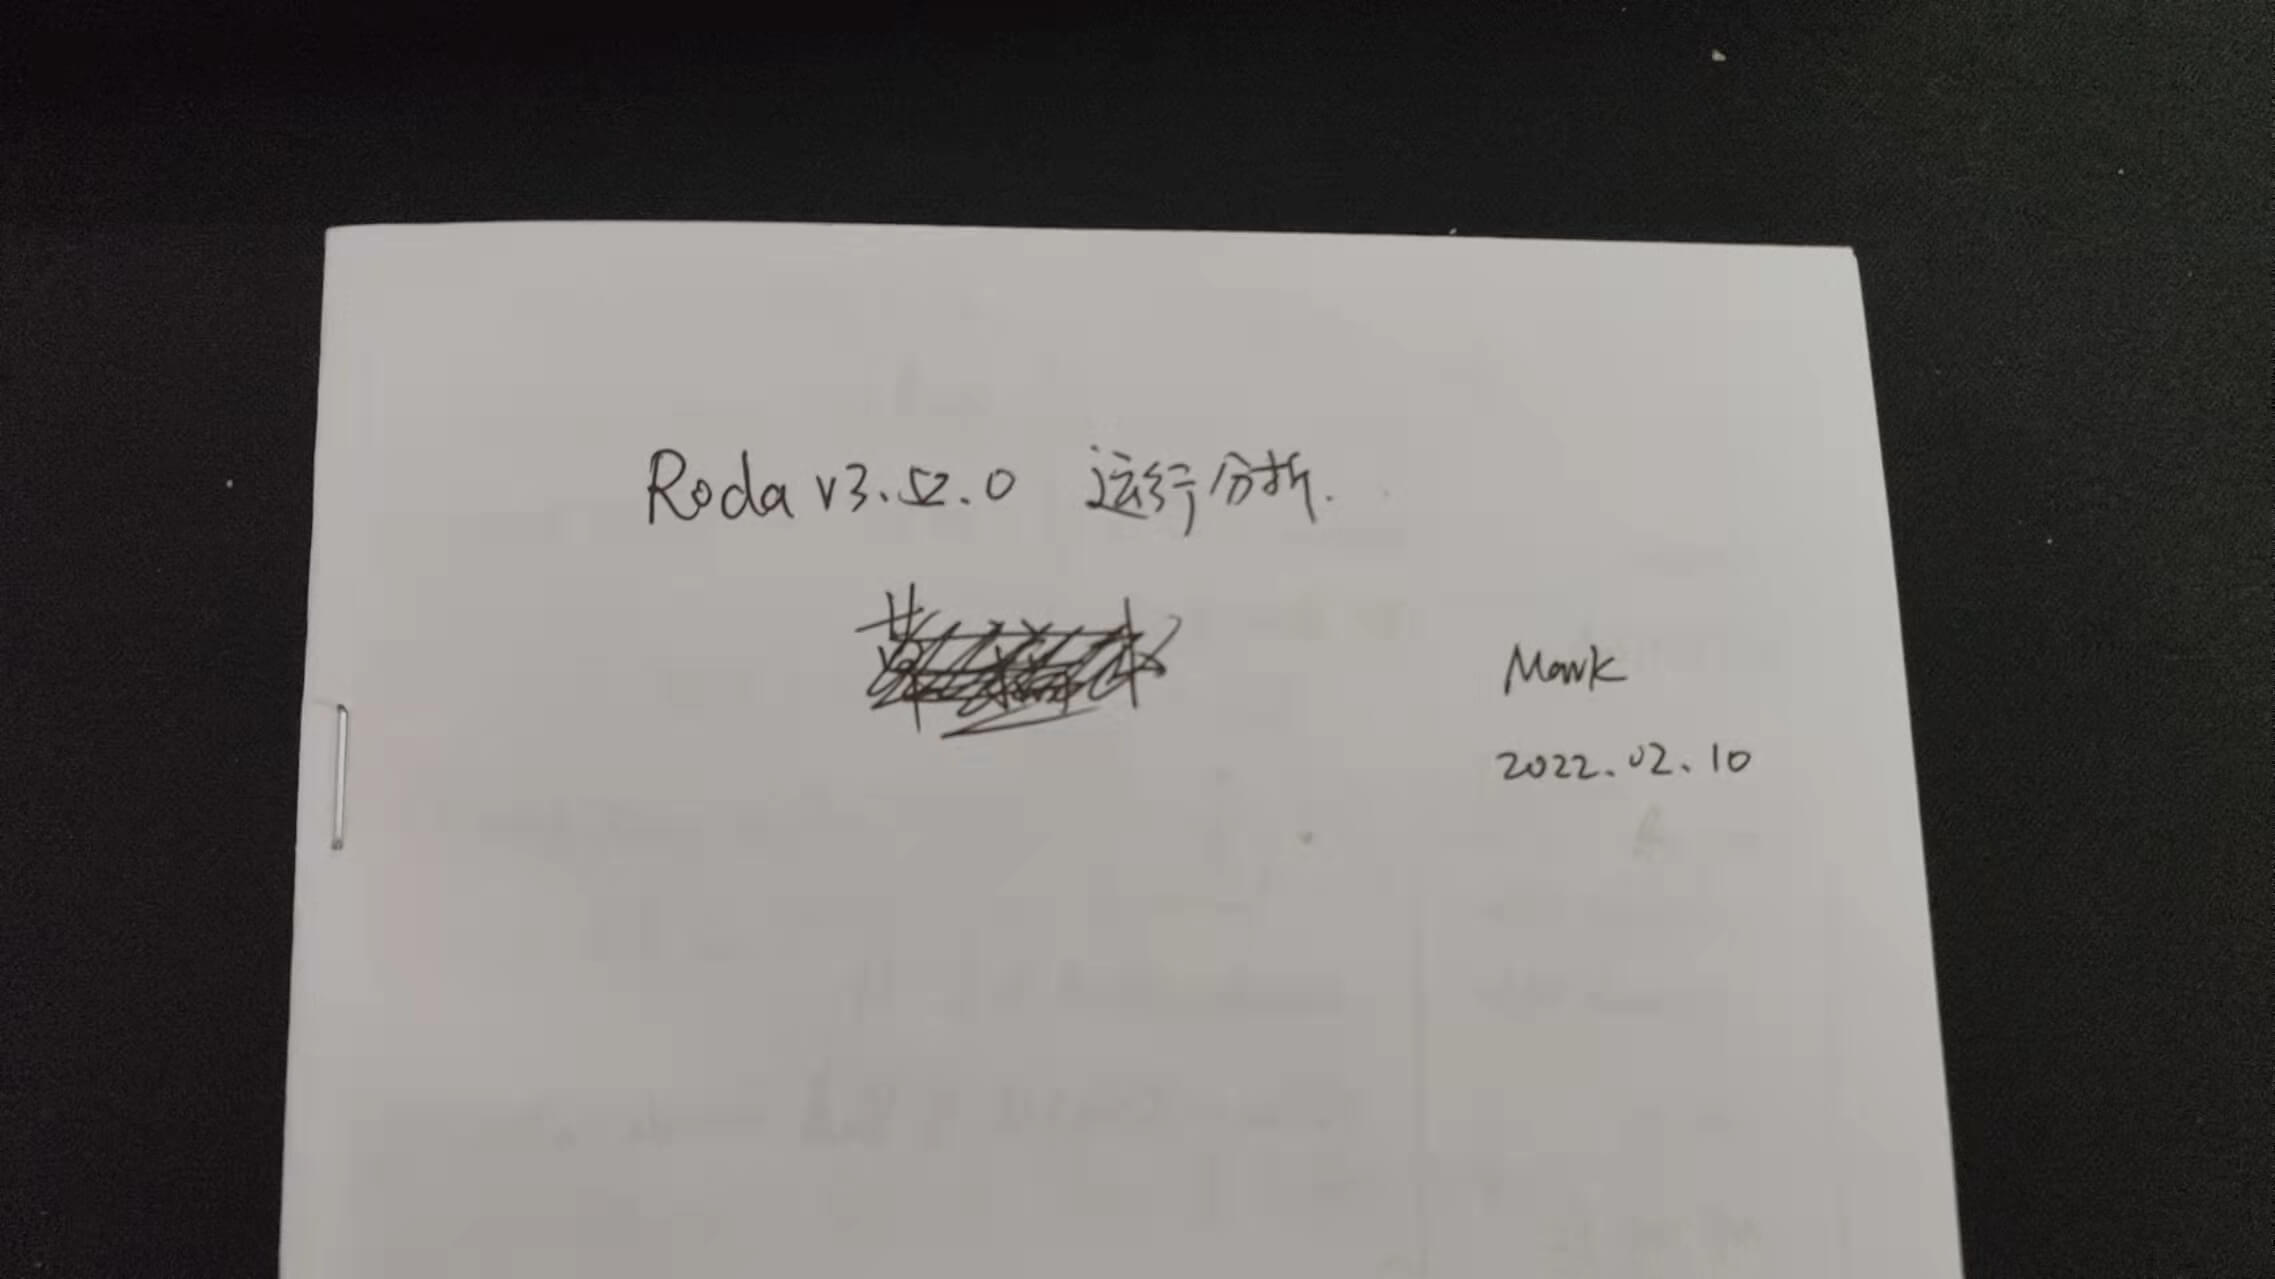 Roda v3.52.0 运行分析.
Mark
2022.02.10